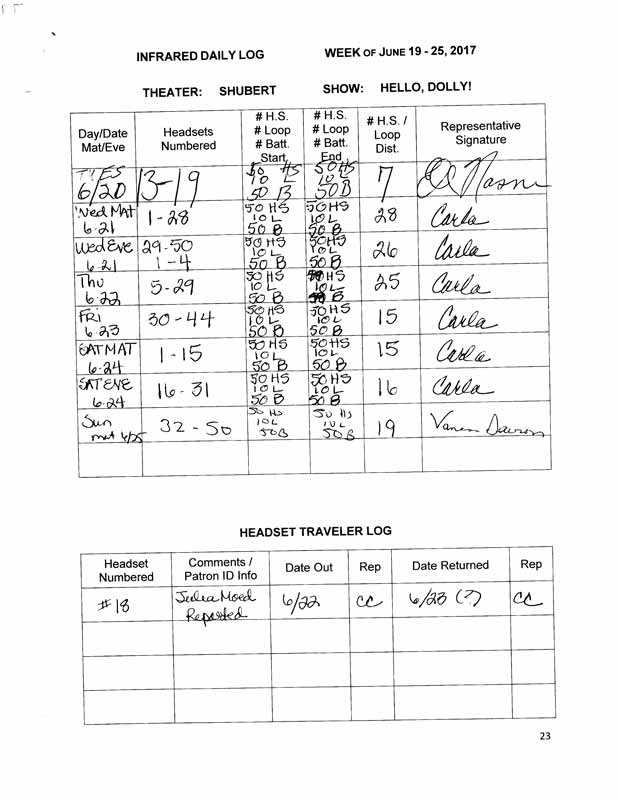 INFRARED DAILY LOG WEEK OF JUNE 19 - 25, 2017
THEATER: SHUBERT SHOW: HELLO, DOLLY!
Day/Date Mat/Eve Headsets Numbered # H.S. # Loop # Batt. Start # H.S. # Loop # Batt. End # H.S. / Loop Dist. Representative Signature
TUES 6/20 13-19 50 HS 10 L 50 B 50 HS 10 L 50 B 7
Wed MAT 6.21 1-28 50 HS 10 L 50 B 50 HS 10 L 50 B 28 Carla
Wed Eve 6.21 29-50 1-4 50 HS 10 L 50 B 50 HS 10 L 50 B 26 Carla
Thu 6.22 5-29 50 HS 10 L 50 B HS 10 L B 25 Carla
FRI 6.23 30-44 50 HS 10 L 50 B 50 HS 10 L 50 B 15 Carla
SAT MAT 6.24 1-15 50 HS 10 L 50 B 50 HS 10 L 50 B 15 Carla
SAT EVE 6.24 16-31 50 HS 10 L 50 B 50 HS 10 L 50 B 16 Carla
Sun mat 6/25 32-50 50 Hs 10 L 50 B 50 Hs 10 L 50 B 19
HEADSET TRAVELER LOG
Headset Numbered Comments / Patron ID Info Date Out Rep Date Returned Rep
#18 Julia Moed Reported 6/22 CC 6/23 (?) CC
23